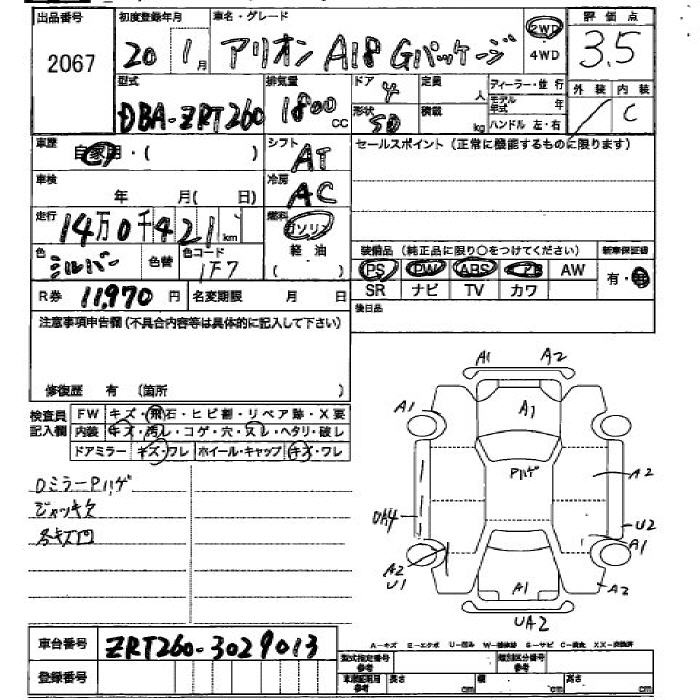 出品番号 初度登録年月 車名・グレード 2WD 4WD 評価点
2067 20 1月 アリオン A18 Gパッケージ 3.5
型式 排気量 ドア 定員 ディーラー・並行 外装 内装
DBA-ZRT260 1800cc 4 人 モデル年式 年 C
形状 5D 積載 kg ハンドル 左・右
車歴 自家用・( ) シフト AT セールスポイント(正常に機能するものに限ります)
車検 年 月( 日) 冷房 AC
走行 14万0千421km 燃料 ガソリン 軽油 ( )
色 シルバー 色替 色コード 1F7 装備品(純正品に限り○をつけてください) 新車保証書
PS PW ABS AB AW 有・無
R券 11,970円 名変期限 月 日 SR ナビ TV カワ
注意事項申告欄(不具合内容等は具体的に記入して下さい) 後日品
修復歴 有 (箇所 )
検査員記入欄 FW キズ・飛石・ヒビ割・リペア跡・X要
内装 キズ・汚レ・コゲ・穴・スレ・ヘタリ・破レ
ドアミラー キズ・ワレ ホイール・キャップ キズ・ワレ
DミラーPハゲ
ジャッキ欠
各キズ凹
A1 A2
A1 A1
Pハゲ A2
UA4 U2
A2 U1 A1
A1 A2
UA2
車台番号 ZRT260-3029013
A-キズ E-エクボ U-凹み W-補修跡 S-サビ C-腐食 XX-交換済
登録番号 型式指定番号 参考 類別区分番号 参考
車検証明用 参考 長さ cm 幅 cm 高さ cm